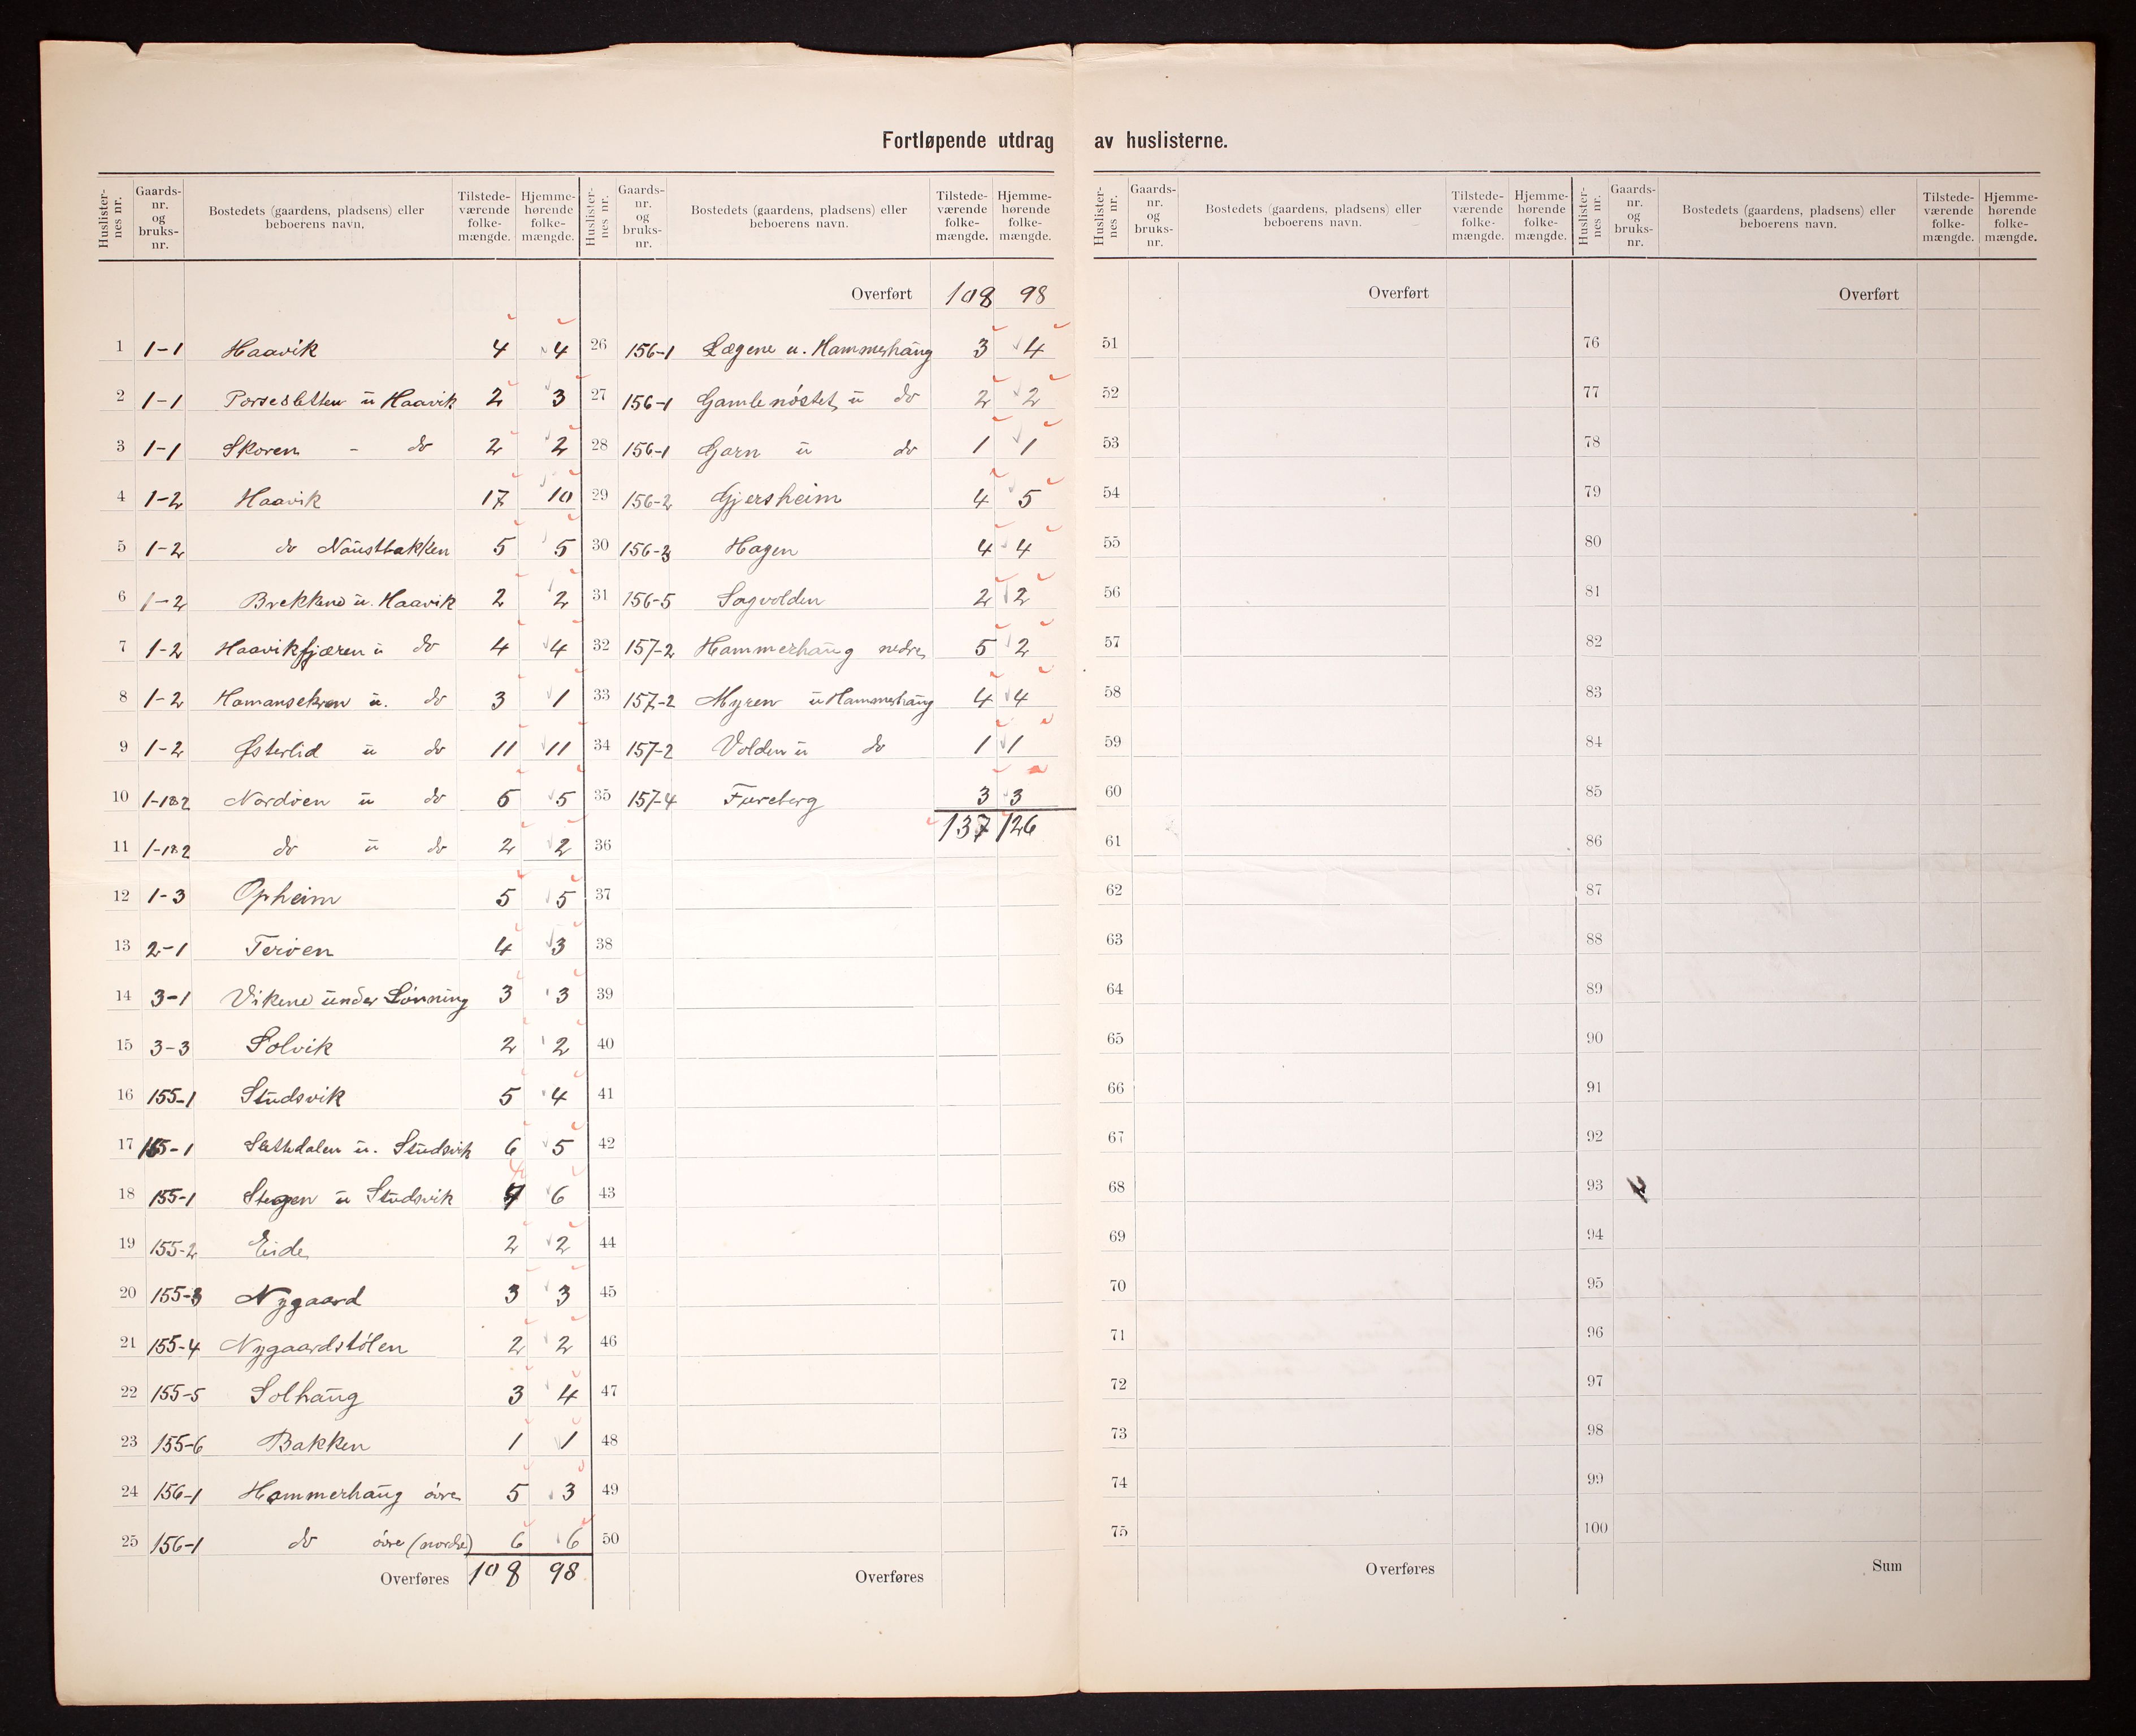 Fortløpende utdrag av huslisterne.
Huslister- nes nr. Gaards- nr. og bruks- nr. Bostedets (gaardens, pladsens) eller beboerens navn. Tilstede- værende folke- mængde. Hjemme- hørende folke- mængde.
1 1-1 Haavik 4 4
2 1-1 Porsesletten u Haavik 2 3
3 1-1 Skoren - do 2 2
4 1-2 Haavik 17 10
5 1-2 do Naustbakken 5 5
6 1-2 Brekkene u. Haavik 2 2
7 1-2 Haavikfjæren u do 4 4
8 1-2 u. do 3 1
9 1-2 Østerlid u do 11 11
10 1-1&2 Nordøen u do 5
11 1-1&2 do u do 2 2
12 1-3 Opheim 5 5
13 2-1 Terøen 4 3
14 3-1 Vikene under Lønning 3 3
15 3-3 Solvik 2 2
16 155-1 Studsvik 5 4
17 155-1 u. Studsvik 6 5
18 155-1 Stegen u Studsvik 6
19 155-2 Eide 2 2
20 155-3 Nygaard 3 3
21 155-4 Nygaardstølen 2 2
22 155-5 Solhaug 3 4
23 155-6 Bakken 1 1
24 156-1 Hammerhaug øvre 5 3
25 156-1 do øvre (nordre) 6 6
Overføres 108 98
Huslister- nes nr. Gaards- nr. og bruks- nr. Bostedets (gaardens, pladsens) eller beboerens navn. Tilstede- værende folke- mængde. Hjemme- hørende folke- mængde.
Overført 108 98
26 156-1 Lægene u. Hammerhaug 3 4
27 156-1 Gamlenøstet u do 2 2
28 156-1 Garn u do 1 1
29 156-2 Gjersheim 4 5
30 156-3 Hagen 4 4
31 156-5 Sagvolden 2 2
32 157-2 Hammerhaug nedre 5 2
33 157-2 Myren u Hammerhaug 4 4
34 157-2 Volden u do 1 1
35 157-4 Fureberg 3 3
36 137 126
37
38
39
40
41
42
43
44
45
46
47
48
49
50
Overføres
Huslister- nes nr. Gaards- nr. og bruks- nr. Bostedets (gaardens, pladsens) eller beboerens navn. Tilstede- værende folke- mængde. Hjemme- hørende folke- mængde.
Overført
51
52
53
54
55
56
57
58
59
60
61
62
63
64
65
66
67
68
69
70
71
72
73
74
75
Overføres
Huslister- nes nr. Gaards- nr. og bruks- nr. Bostedets (gaardens, pladsens) eller beboerens navn. Tilstede- værende folke- mængde. Hjemme- hørende folke- mængde.
Overført
76
77
78
79
80
81
82
83
84
85
86
87
88
89
90
91
92
93
94
95
96
97
98
99
100
Sum